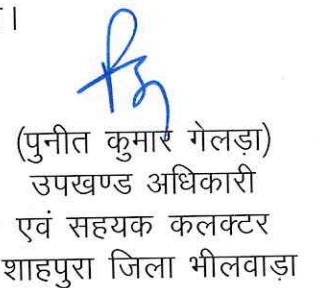 ।
(पुनीत कुमार गेलड़ा)
उपखण्ड अधिकारी
एवं सहयक कलक्टर
शाहपुरा जिला भीलवाड़ा